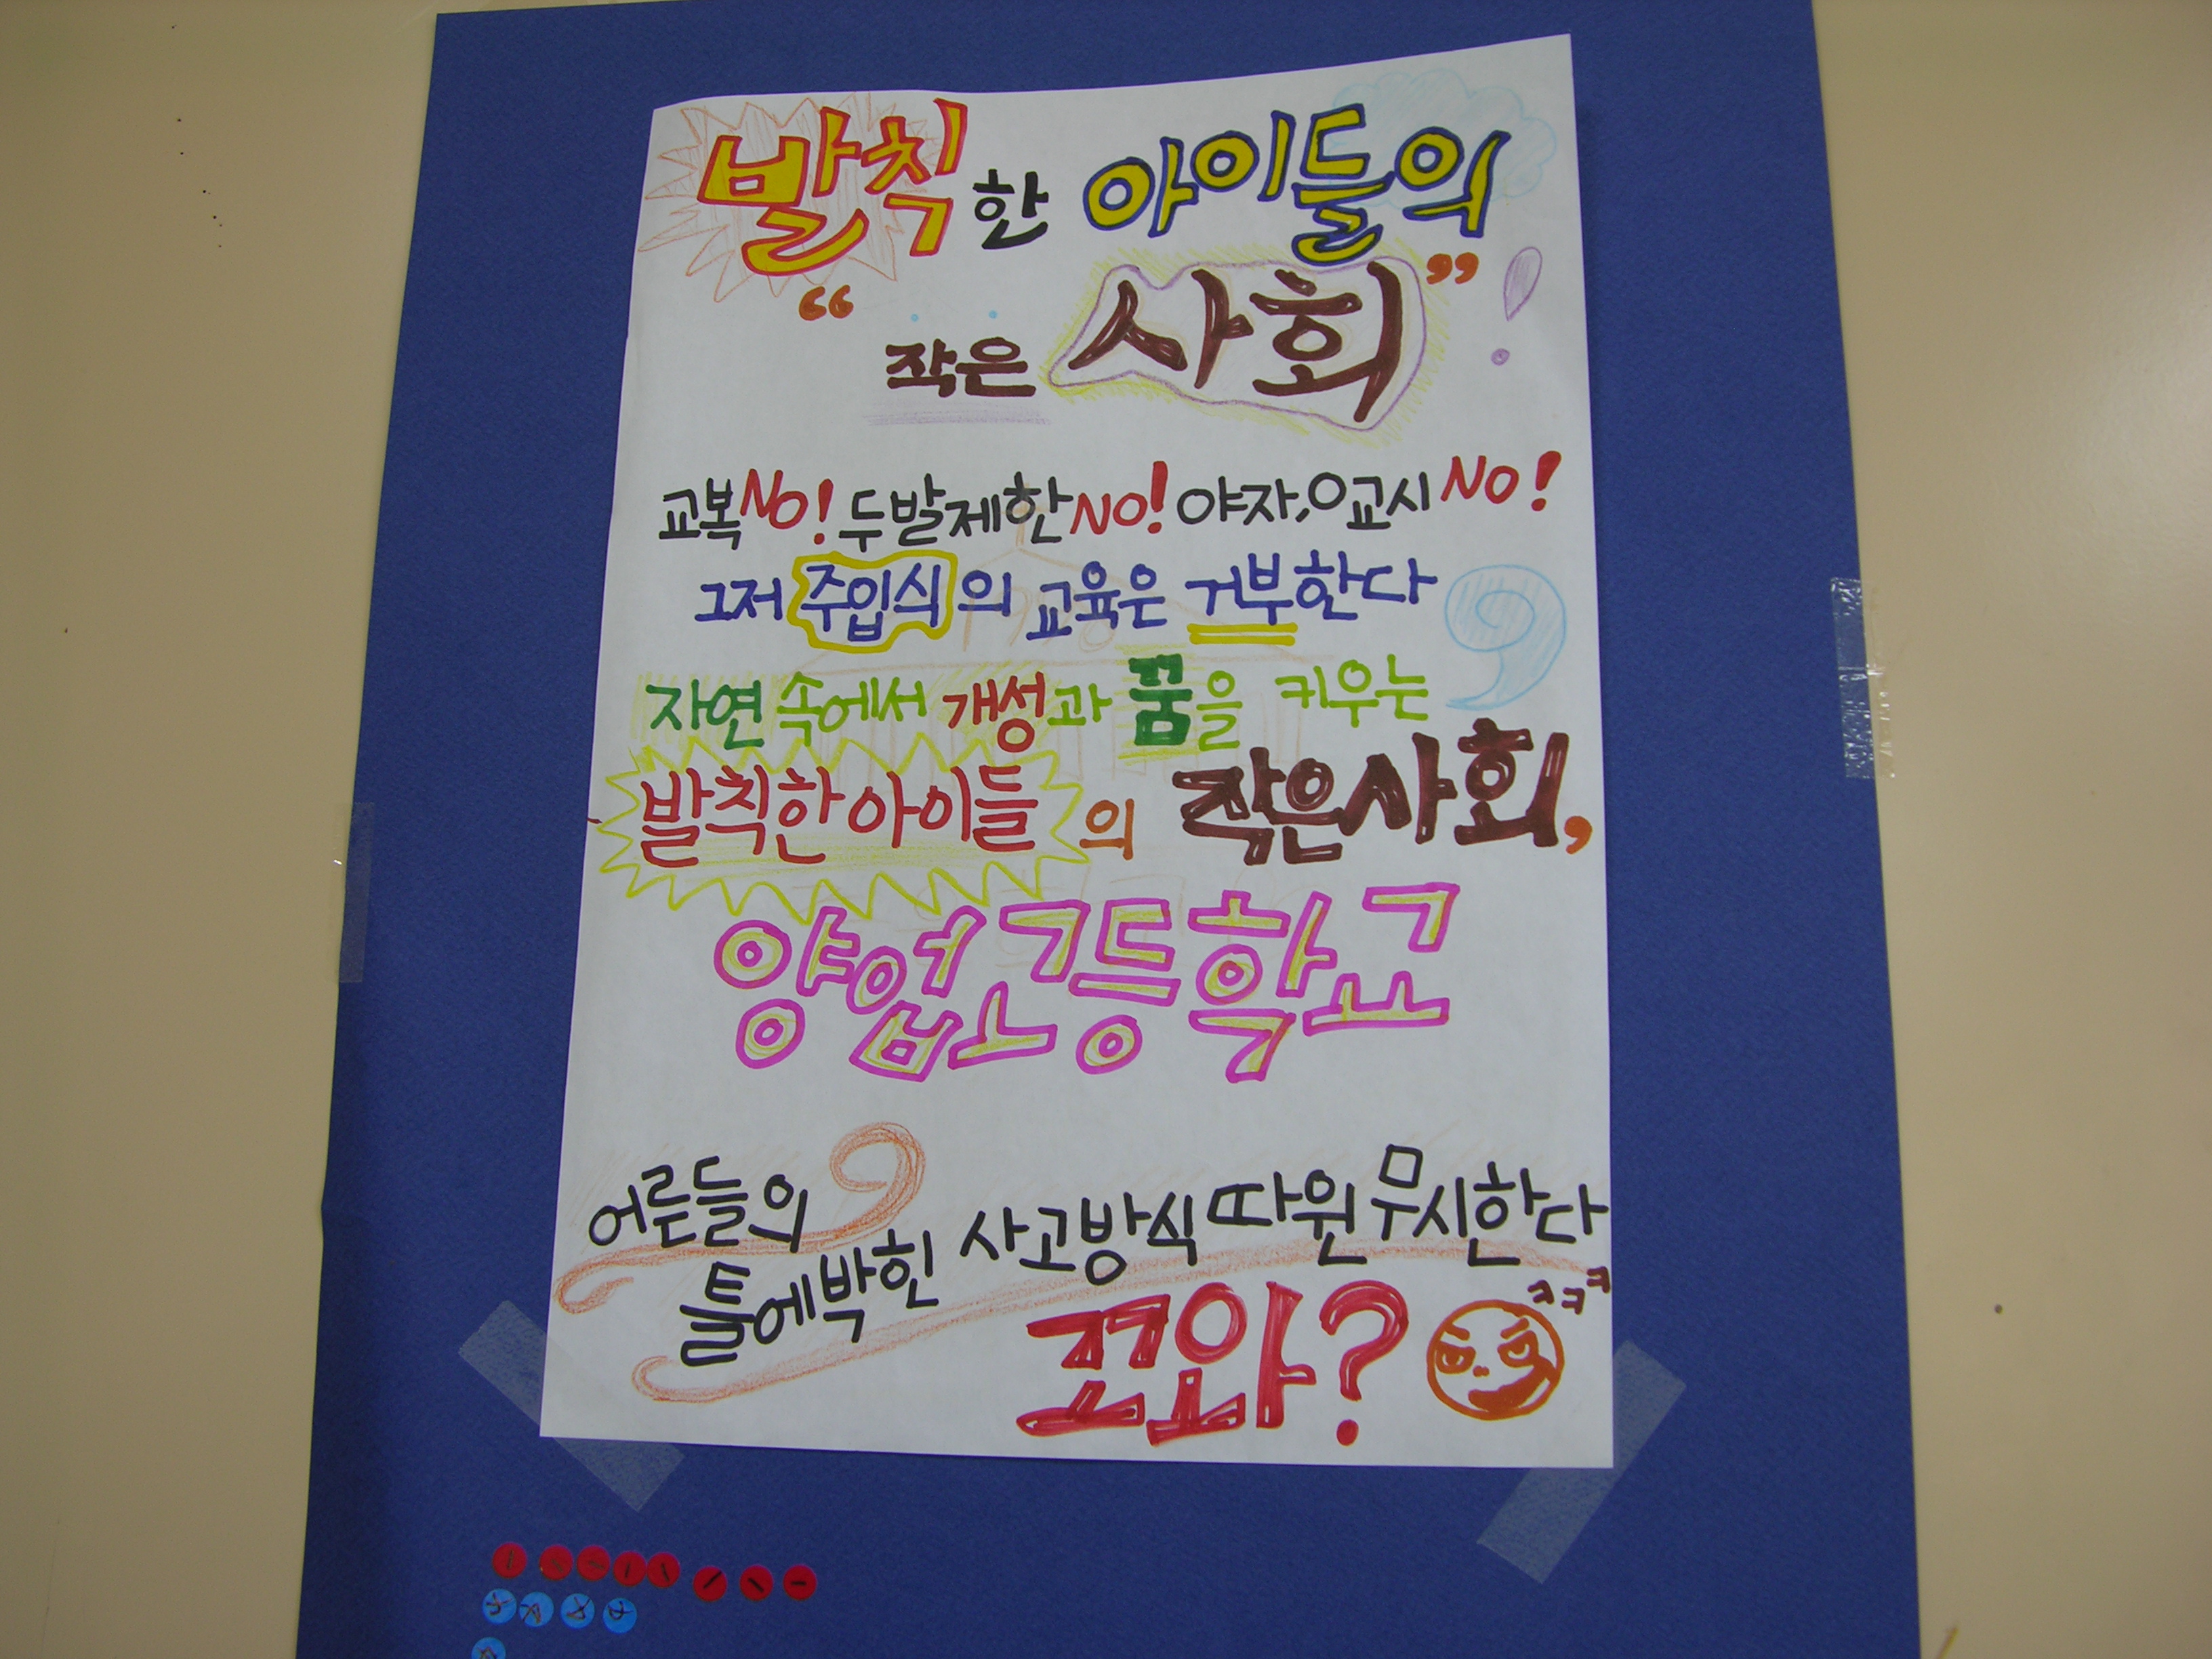 발칙한 아이들의
“작은 사회”!
교복NO! 두발제한NO! 야자,0교시 NO!
그저 주입식의 교육은 거부한다
자연 속에서 개성과 꿈을 키우는
발칙한 아이들의 작은사회,
양업고등학교
어른들의
틀에박힌 사고방식 따윈 무시한다
ㅋㅋㅋ
꼬와?